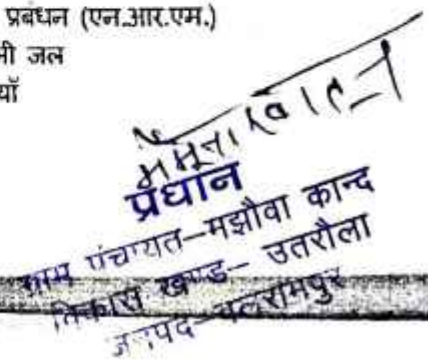 प्रबंधन (एन.आर.एम.)
जल
प्रधान
ग्राम पंचायत-मझौवा कान्द
विकास खण्ड- उतरौला
जनपद-बलरामपुर